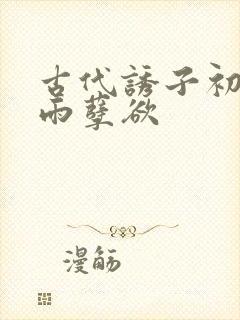 古代誘子初
雨孽欲
漫觞